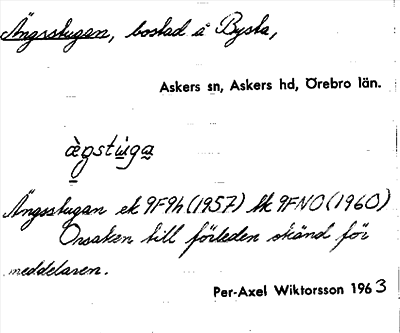 Ängsstugan, bostad å Bysta,
Askers sn, Askers hd, Örebro län.
ägstùga
Ängsstugan ek 9F9h (1957) tk 9FNO (1960)
Orsaken till förleden okänd för
meddelaren.
Per-Axel Wiktorsson 1963